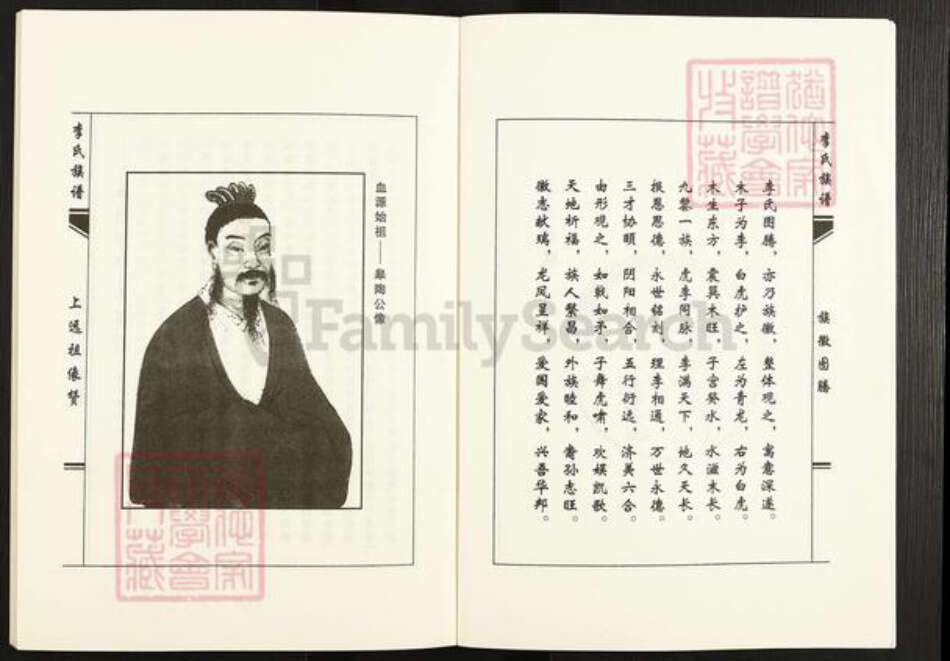 李氏族谱
族徽图腾
李氏图腾，亦乃族徽，整体观之，寓意深邃。
木子为李，白虎护之，左为青龙，右为白虎。
木生东方，震巽木旺，子宫癸水，水滋木长。
九黎一族，虎李同脉，李满天下，地久天长。
报恩思德，永世铭刻，理李相通，万世永德。
三才协颐，阴阳相合，五行衍选，济美六合。
由形观之，如戟如矛，子舞虎啸，欢娱凯歌。
天地祈福，族人繁昌，外族睦和，裔孙志旺。
徽志献瑞，龙凤呈祥，爱国爱家，兴吾华邦。
血源始祖——皋陶公像
李氏族谱
上远祖像赞
FamilySearch